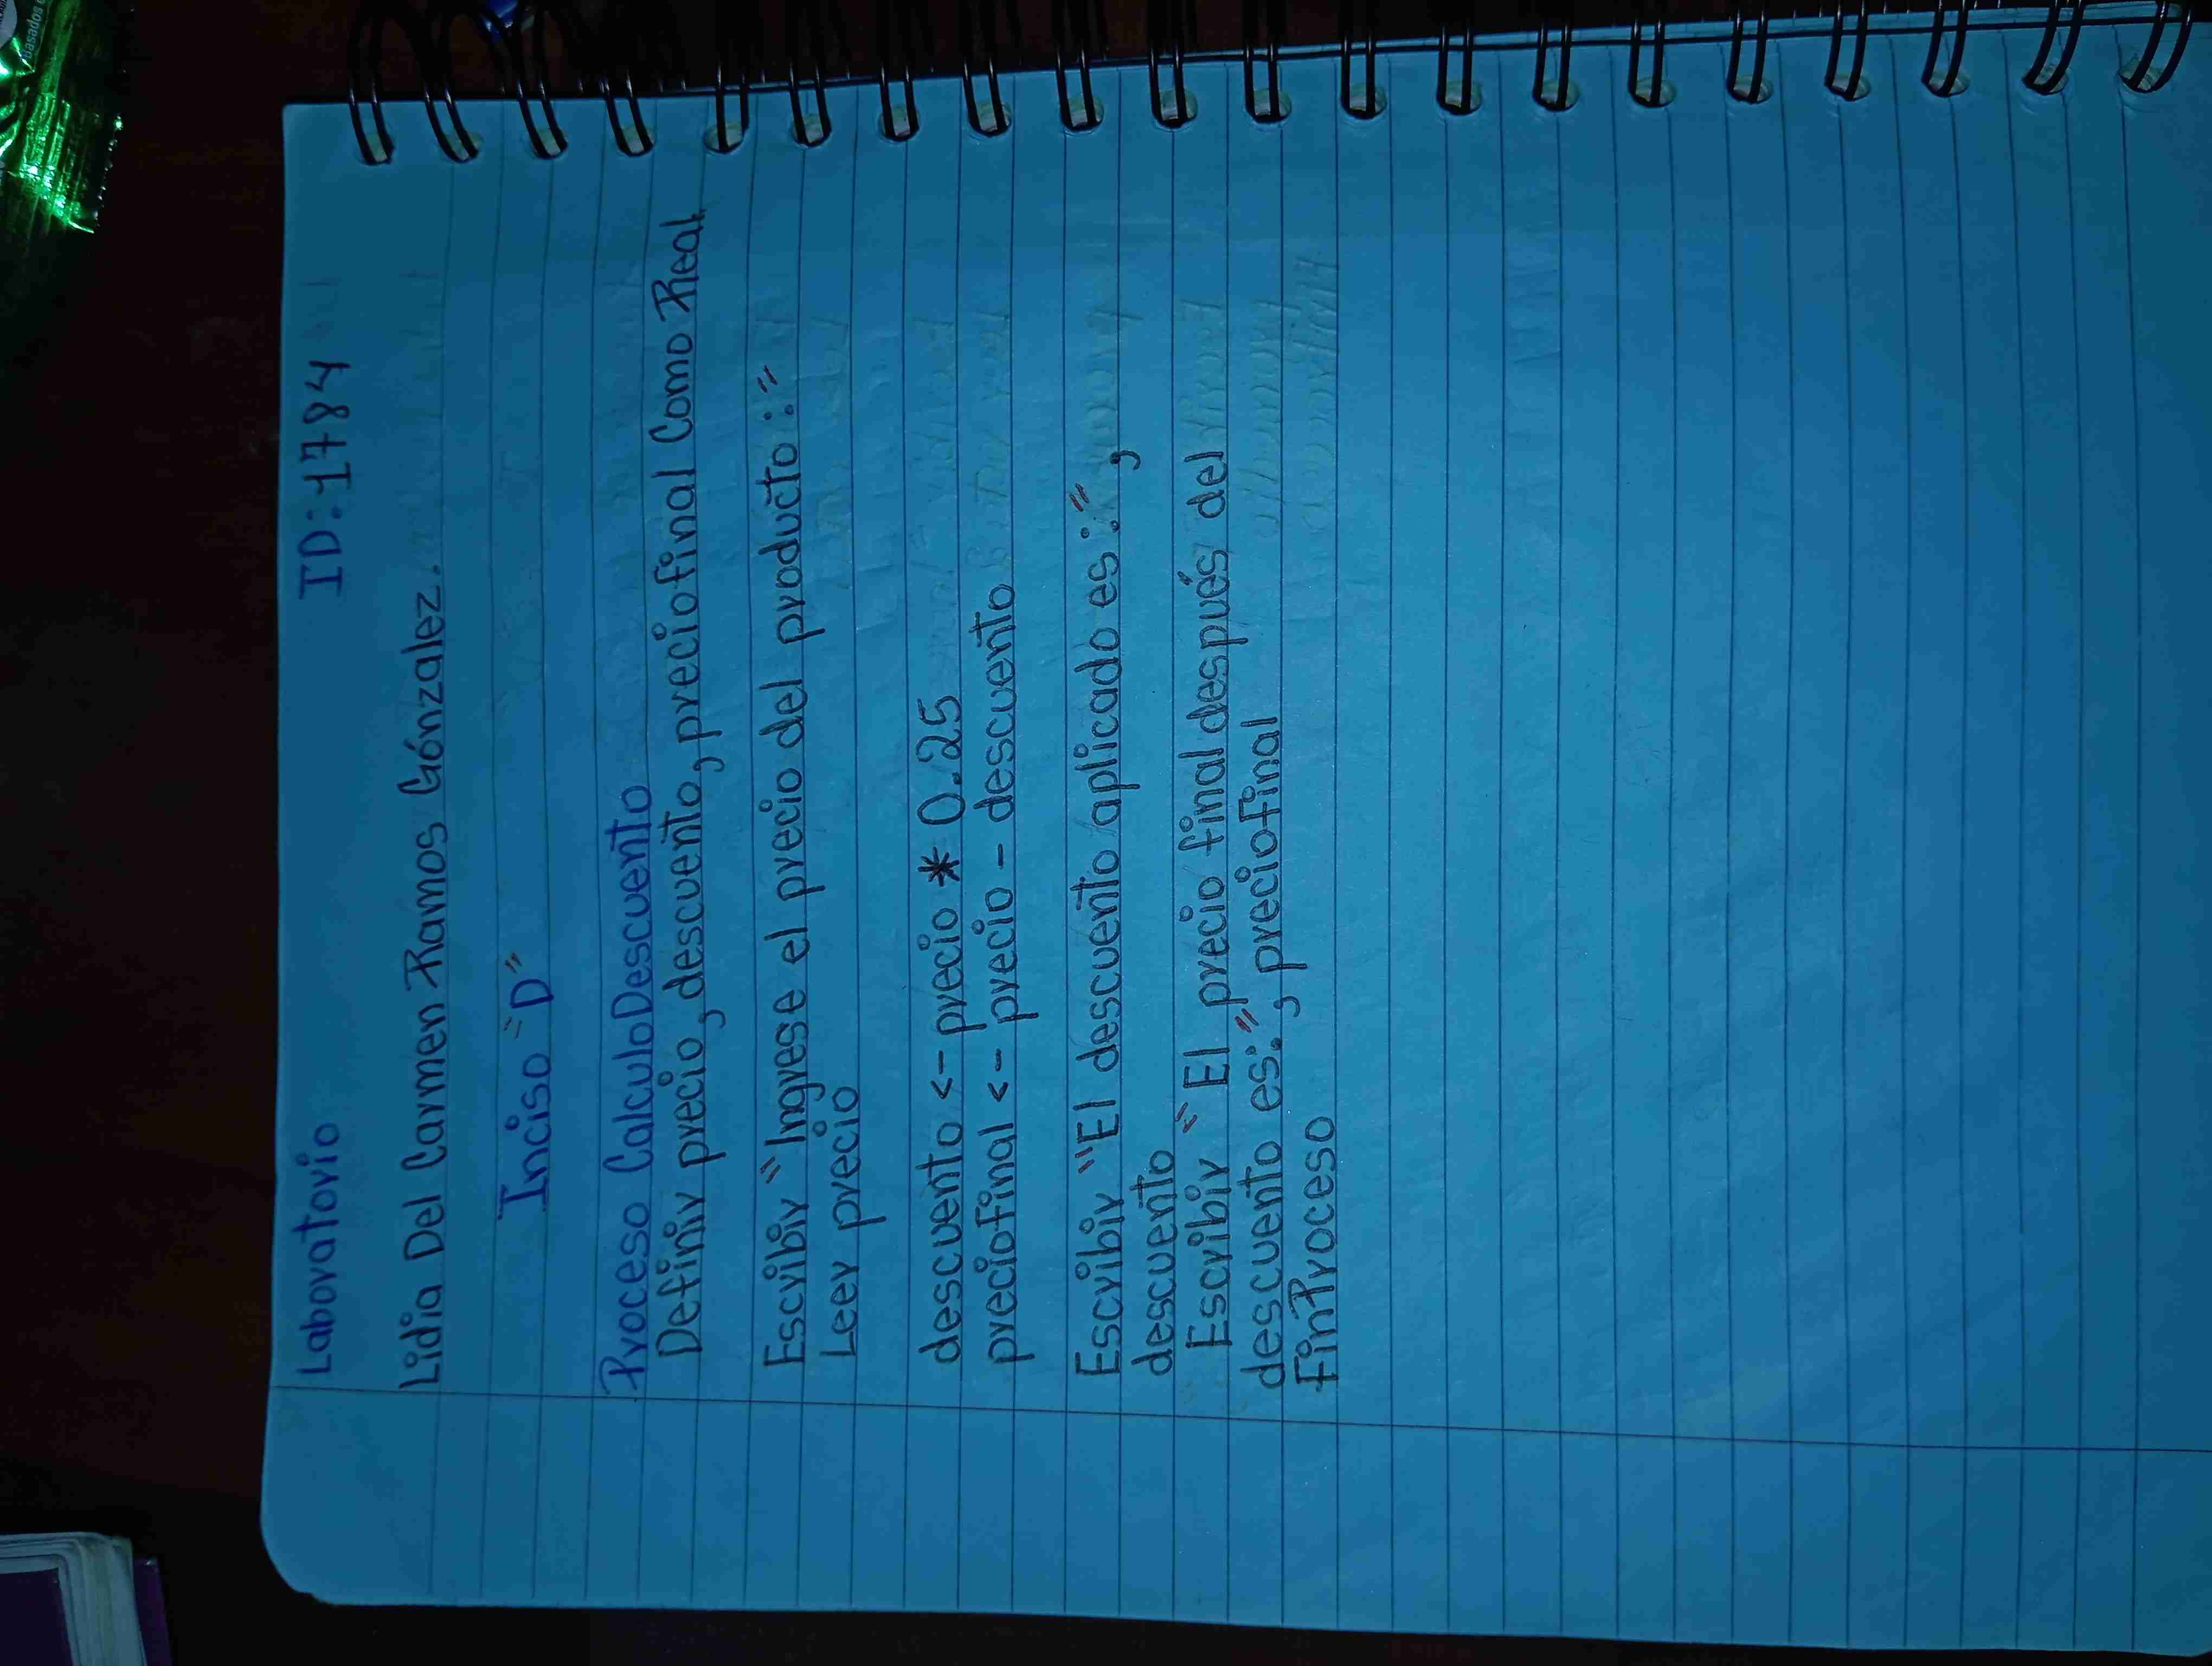 Laboratorio ID:1784
Lidia Del Carmen Ramos Gónzalez.
Inciso "D"
Proceso CalculoDescuento
Definir precio, descuento, preciofinal Como Real
Escribir "Ingrese el precio del producto:"
Leer precio
descuento <- precio * 0.25
preciofinal <- precio - descuento
Escribir "El descuento aplicado es:",
descuento
Escribir "El precio final después del
descuento es:", preciofinal
FinProceso